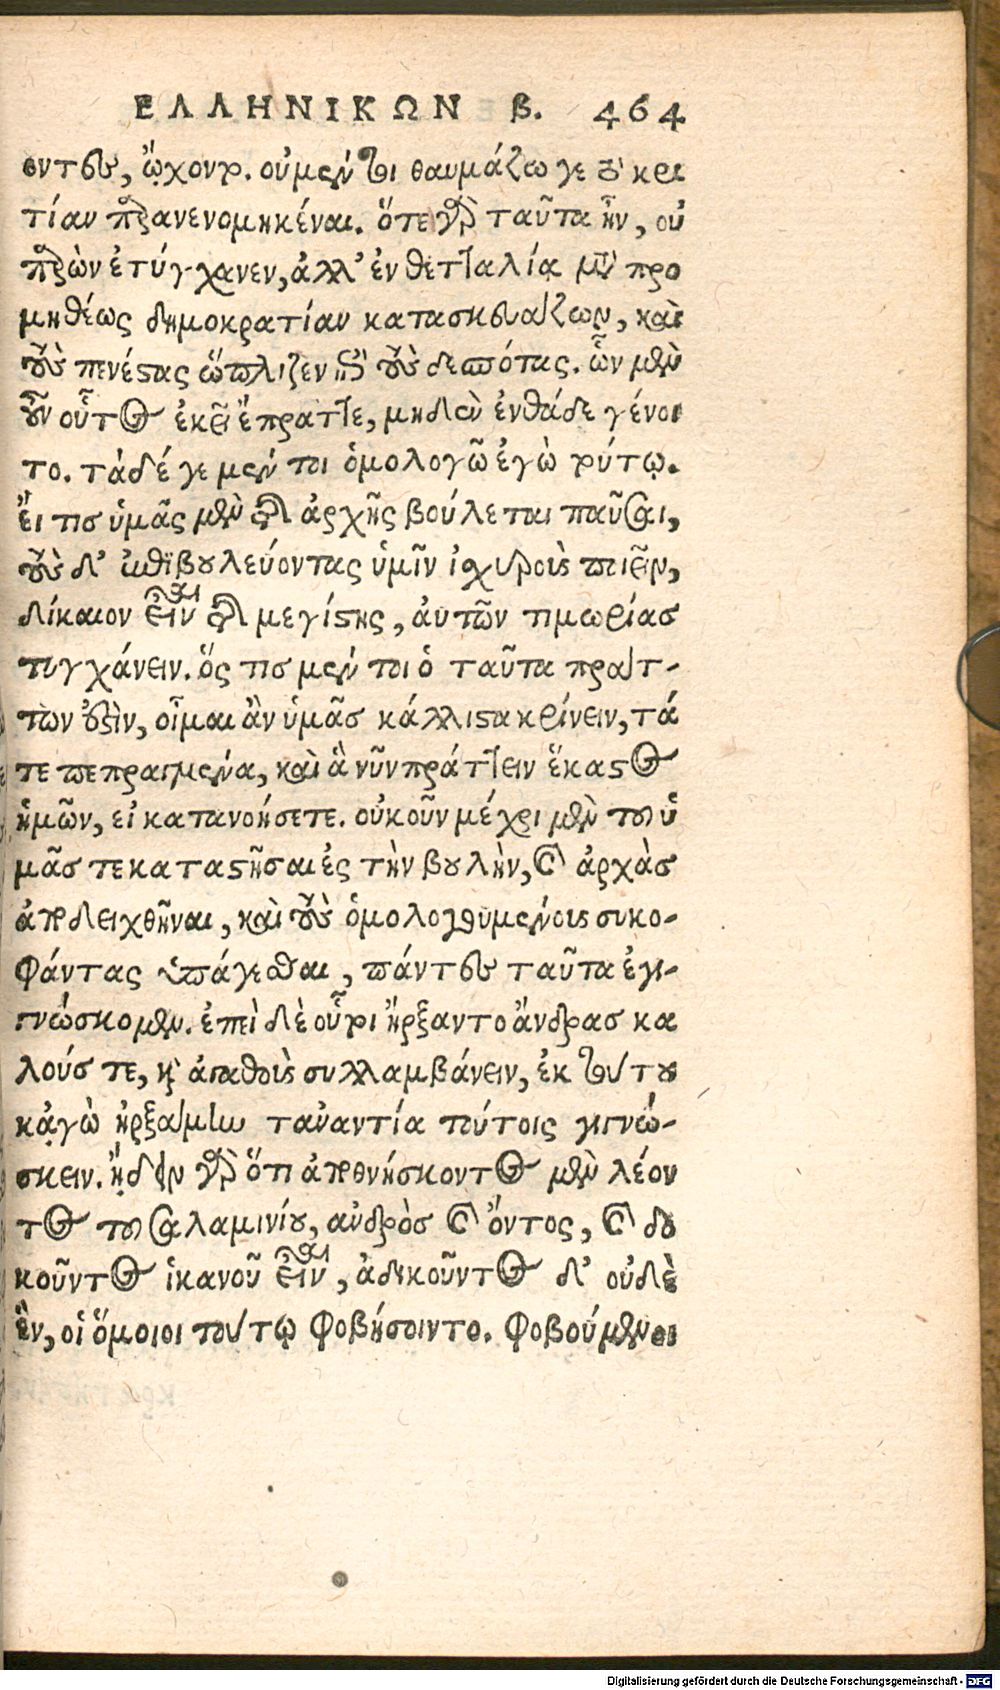 ΕΛΛΗΝΙΚΩΝ β. 464
οντες, ᾤχοντο. οὐ μέντοι θαυμάζω γε τὸ κρι
τίαν παρανενομηκέναι. ὅτε γὰρ ταῦτα ἦν, οὐ
παρὼν ἐτύγχανεν, ἀλλ' ἐν θετταλίᾳ μετὰ προ
μηθέως δημοκρατίαν κατασκευάζων, καὶ
τοὺς πενέστας ὥπλιζεν ἐπὶ τοὺς δεσπότας. ὧν μὲν
οὖν οὗτος ἐκεῖ ἔπραττε, μηδὲν ἐνθάδε γένοι
το. τάδέ γε μέντοι ὁμολογῶ ἐγὼ τούτῳ.
εἴ τισ ὑμᾶς μὲν τῆς ἀρχῆς βούλεται παῦσαι,
τοὺς δ' ἐπιβουλεύοντας ὑμῖν ἰσχυροὺς ποιεῖν,
δίκαιον εἶναι τῆς μεγίστης, αὐτῶν τιμωρίασ
τυγχάνειν. ὅς τισ μέντοι ὁ ταῦτα πράτ-
των ἐστὶν, οἶμαι ἂν ὑμᾶσ κάλλιστα κρίνειν, τά
τε πεπραγμένα, καὶ ἃ νῦν πράττειν ἕκαστος
ἡμῶν, εἰ κατανοήσετε. οὐκοῦν μέχρι μὲν τοῦ ὑ
μᾶσ τε καταστῆσαι ἐς τὴν βουλὴν, καὶ ἀρχὰσ
ἀποδειχθῆναι, καὶ τοὺς ὁμολογουμένους συκο-
φάντας ὑπάγεσθαι, πάντες ταῦτα ἐγι-
γνώσκομεν. ἐπεὶ δὲ οὗτοι ἤρξαντο ἄνδρασ κα
λούσ τε, καὶ ἀγαθοὺς συλλαμβάνειν, ἐκ τούτου
κἀγὼ ἠρξάμην ταναντία τούτοις γιγνώ-
σκειν. ᾔδειν γὰρ ὅτι ἀποθνήσκοντος μὲν λέον
τος τοῦ σαλαμινίου, ανδρὸσ καὶ ὄντος, καὶ δο
κοῦντος ἱκανοῦ εἶναι, ἀδικοῦντος δ' οὐδὲ
ἓν, οἱ ὅμοιοι τούτῳ φοβήσοιντο. φοβούμενοι
Digitalisierung gefördert durch die Deutsche Forschungsgemeinschaft - DFG